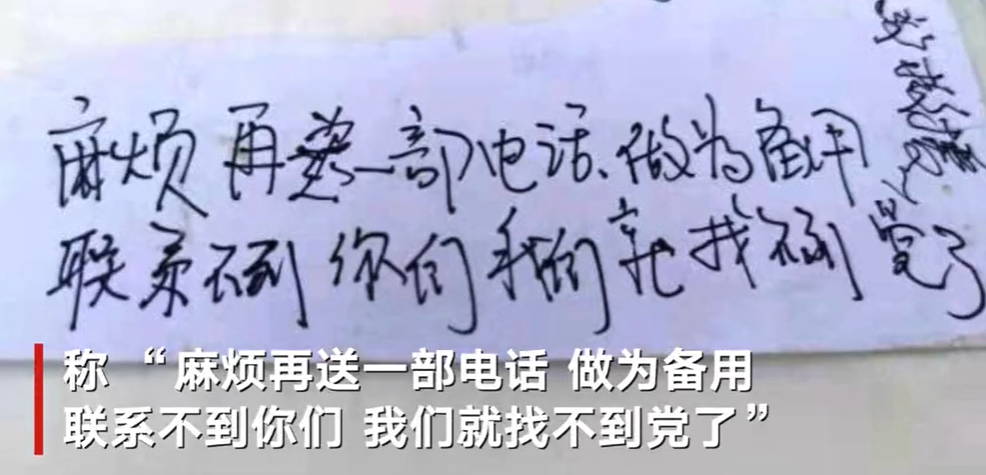 麻烦再送一部电话、做为备用
联系不到你们我们就找不到党了
称 “麻烦再送一部电话 做为备用
联系不到你们 我们就找不到党了”